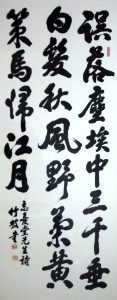 誤落塵埃中三千垂
白髮秋風野黃
策馬歸江月
堂先生詩
竹書